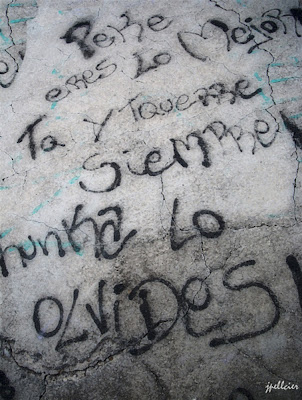 Peke
eres Lo Mejor
Ta y TQuerre
SiemPRe!
nunka Lo
OLViDes!
jpellcier